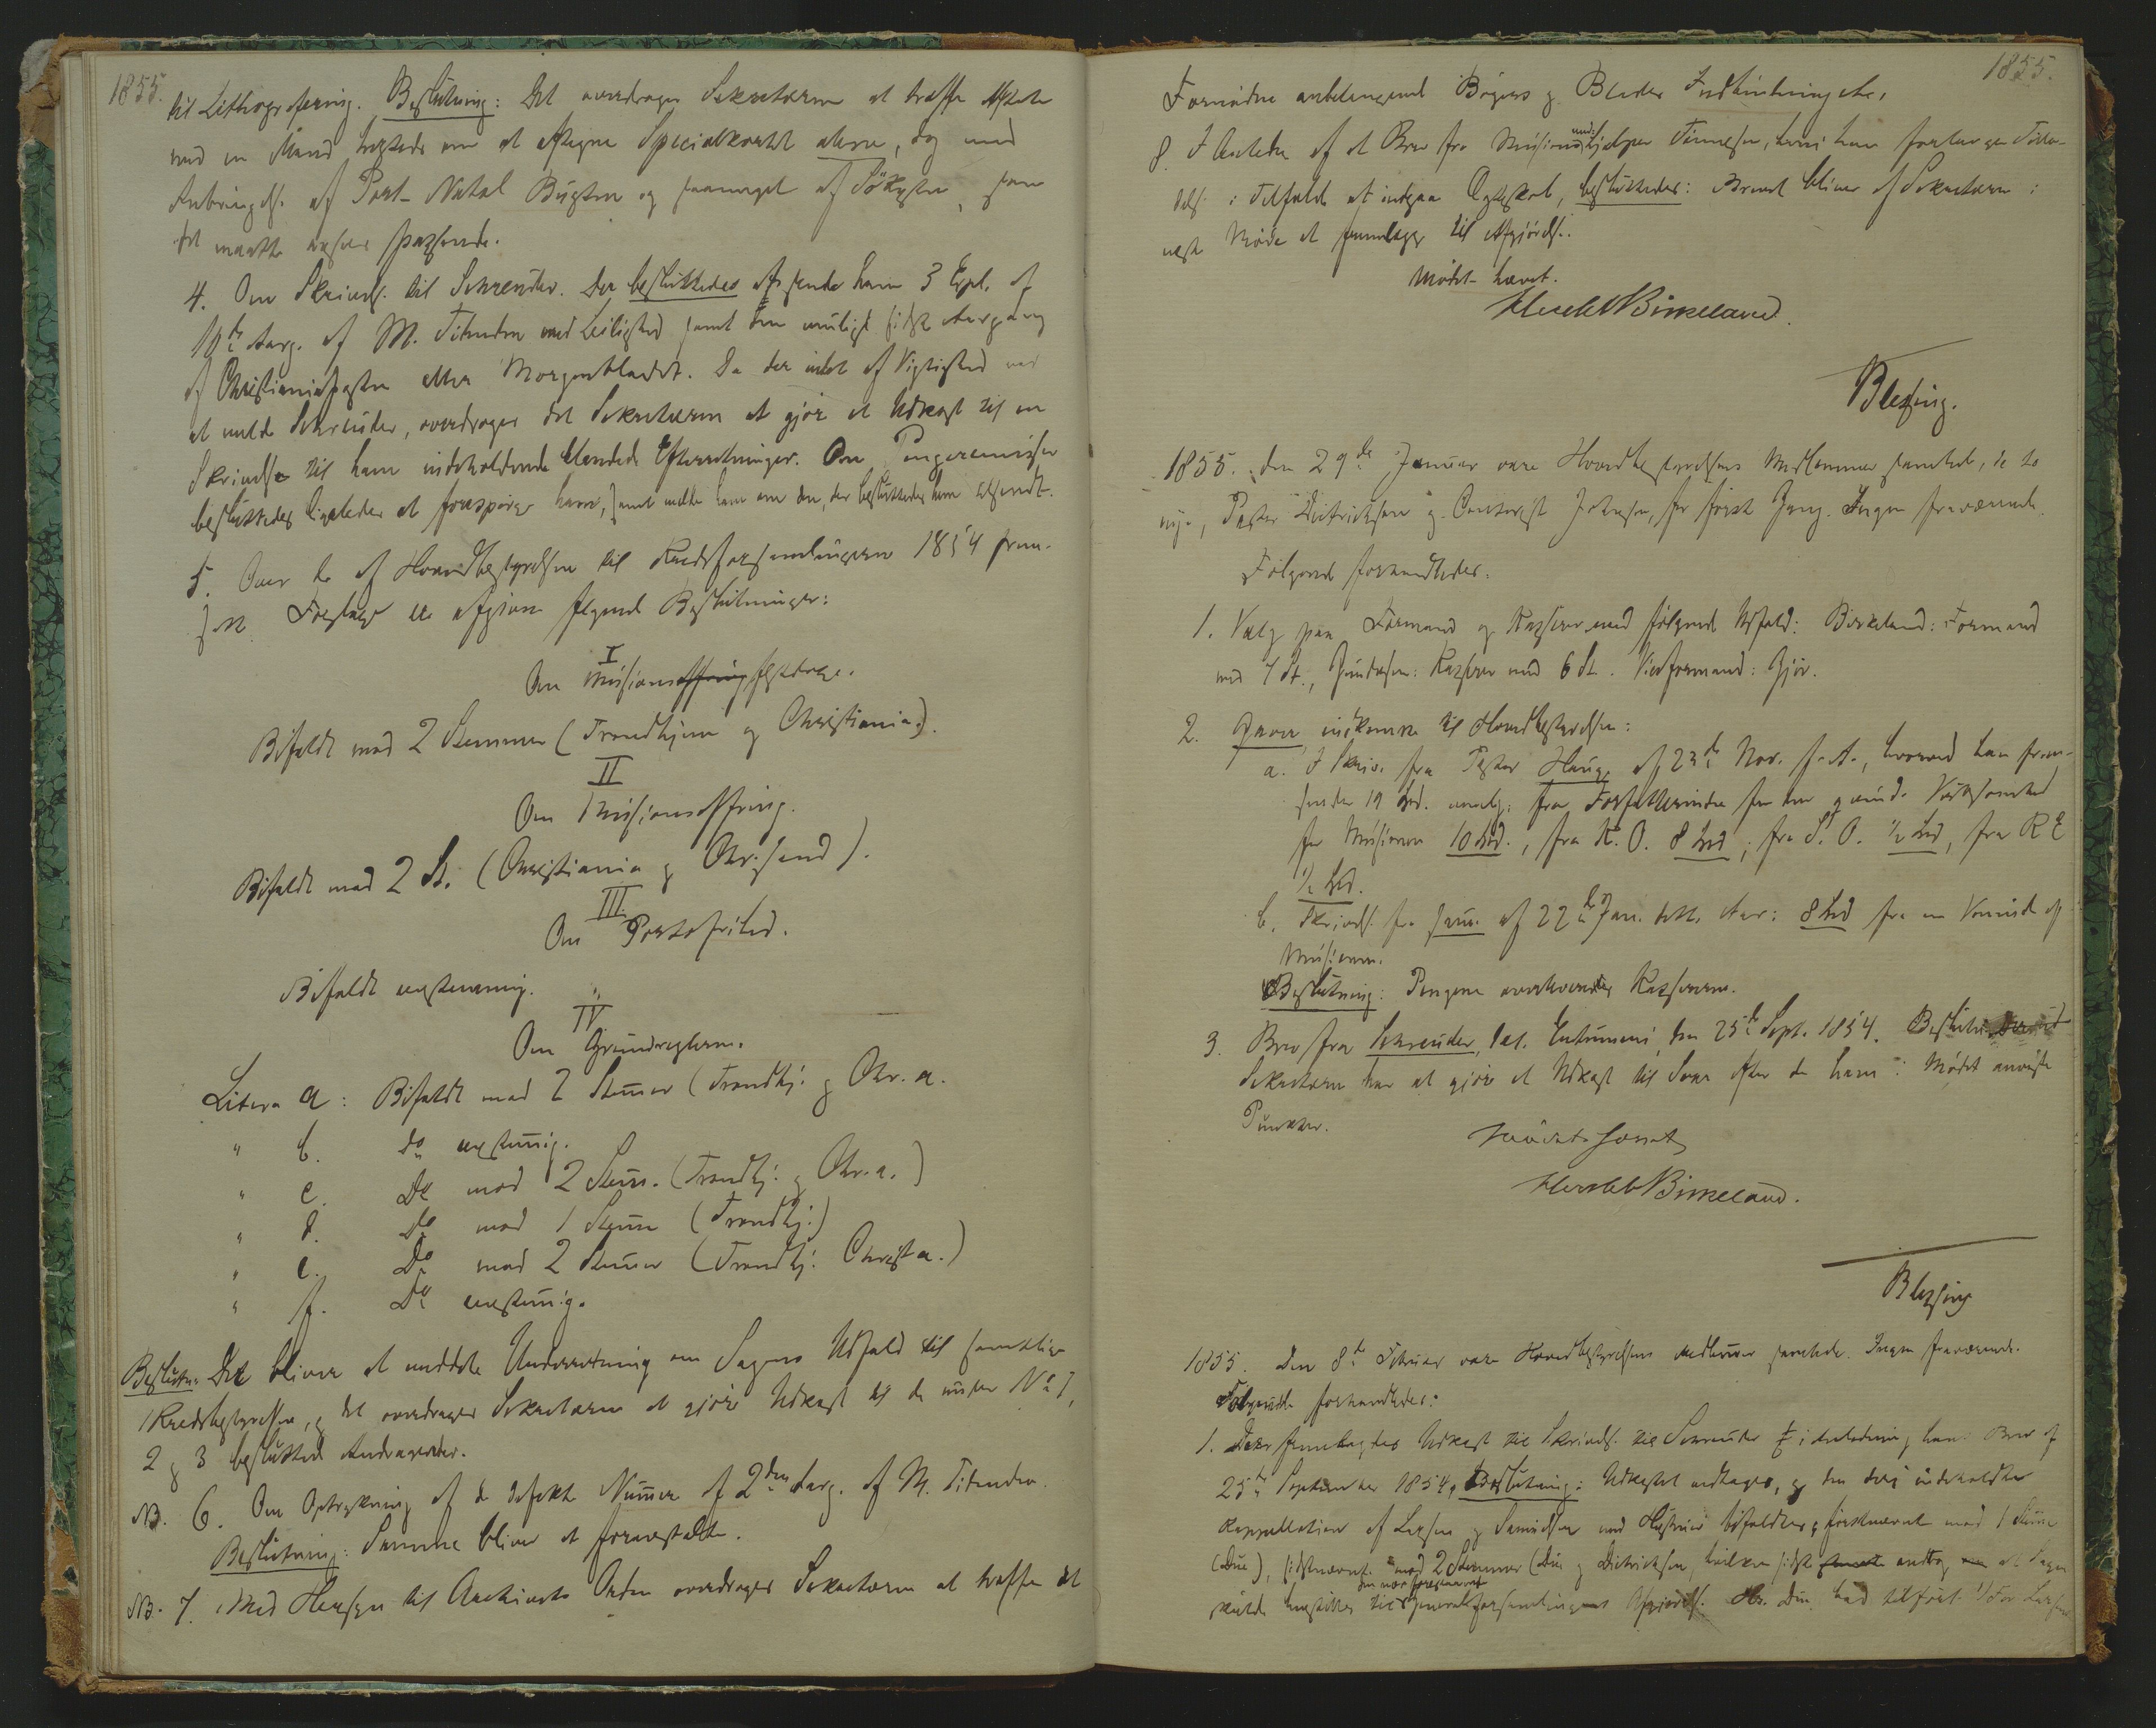 1855.
til Lithografering. Beslutning: Det overdrages Sekretæren at træffe
med en Mand om at aftegne Specialkartet alene, dog med
Anbringelse af Port-Natal Bugten og saameget af Søkysten, som
det maatte passende.
4. Om Skrivelse til Schreuder. Der besluttedes at sende ham 3 Expl. af
Aarg. af M. Tidenden med Leilighed samt den muligt sidste Aargang
af Christianiaposten eller Morgenbladet. Da der intet af Vigtighed var
at melde Schreuder, overdroges det Sekretæren at gjøre et Udkast til en
Skrivelse til ham indeholdende blandede Efterretninger. Om Pengeremisser
besluttedes ligeledes at forespørge ham, samt melde ham om den, der besluttedes ham tilsendt.
5. Over de af Hovedbestyrelsen til Kredsforsamlingerne 1854 frem-
satte Forslage ere afgivne følgende Beslutninger:
I
Om Missions
Bifaldt mod 2 Stemmer (Trondhjem og Christiania).
II
Om Missionsoffring.
Bifaldt mod 2 St. (Christiania og Chr.sand).
III.
Om Portofrihed.
Bifaldt eenstemmig.
IV
Om Grundreglerne.
Litera a: Bifaldt mod 2 Stemmer (Trondhj. og Chr.a.
" b. do eenstemmig.
" c. Do mod 2 Stem. (Trondhj. og Chr.a.)
" d. Do mod 1 Stemme (Trondhj.)
" e. Do mod 2 Stemmer (Trondhj. Christ a.)
" f. Do eenstemmig.
Beslutn. Det bliver at meddele Underretning om Sagens Udfald til samtlige
Kredsbestyrelser, og det overdrages Sekretæren at gjøre Udkast til de under No 1,
2 og 3 besluttede Andragender.
NB. 6. Om Optrykning af de defekte Numere af 2den Aarg. af M. Tidenden.
Beslutning: Samme bliver at foranstalte.
NB. 7. Med Hensyn til Archivets Orden overdrages Sekretæren at træffe det
1855.
Fornødne anbelangende Bøgers og Blades Indbinding etc.
8. I Anledn. af et Brev fra Missionsund:hjelper, hvori han forlanger Tilla-
delse i Tilfælde at indgaa Ægteskab, besluttedes: Brevet bliver af Sekretæren i
næste Møde at fremlægge til Afgjørelse.
Mødet hævet.
Hersleb Birkeland.
Blessing.
1855. den 29de Januar vare Hovedbestyrelsens Medlemmer samlede, de to
nye, Pastor Dietrichson og Johnsen, for første Gang. Ingen fraværende.
Følgende forhandledes:
1. Valg paa Formand og Kasserer med følgende Udfald: Birkeland: Formand
med 7 St., Gundersen: Kasserer med 6 St. Viceformand: Gjør.
2. Gaver indkomne til Hovedbestyrelsen:
a. I Skriv. fra Pastor Hauge af 23de Nov. f. A., hvorved han frem-
sender 19 Spd. nemlig: fra Forfatterinden
for Missionen 10 Spd., fra K. O. 8 Spd, fra S. O. ½ Spd, fra R E
½ Spd.
b. Skrivelse fra samme af 22de Jan. dette Aar: 8 Spd fra en Veninde af
Missionen.
Beslutning: Pengene overleveredes Kassereren.
3. Brev fra Schreuder, dat. Entumeni den 25de Sept. 1854. Beslutn.
Sekretæren har at gjøre et Udkast til Svar efter de ham i Mødet anviste
Punkter.
Mødet hævet
Hersleb Birkeland.
Blessing
1855. Den 8de Februar vare Hovedbestyrelsens Medlemmer samlede. Ingen fraværende.
Følgende forhandledes:
1. Der fremlagdes Udkast til Skrivelse til Schreuder i Anledning hans Brev af
25de September 1854. Beslutning: Udkastet vedtages, og den deri indeholdte
af Larsen og Hustruer bifaldtes, førstnævnte mod 1 Stemme
(Due), sidstnævnte mod 2 Stemmer (Due og Dietrichson, hvilken sidste at Sagen
skulde henstilles til Generalforsamlingens Afgjørelse. Hr. Due tilført